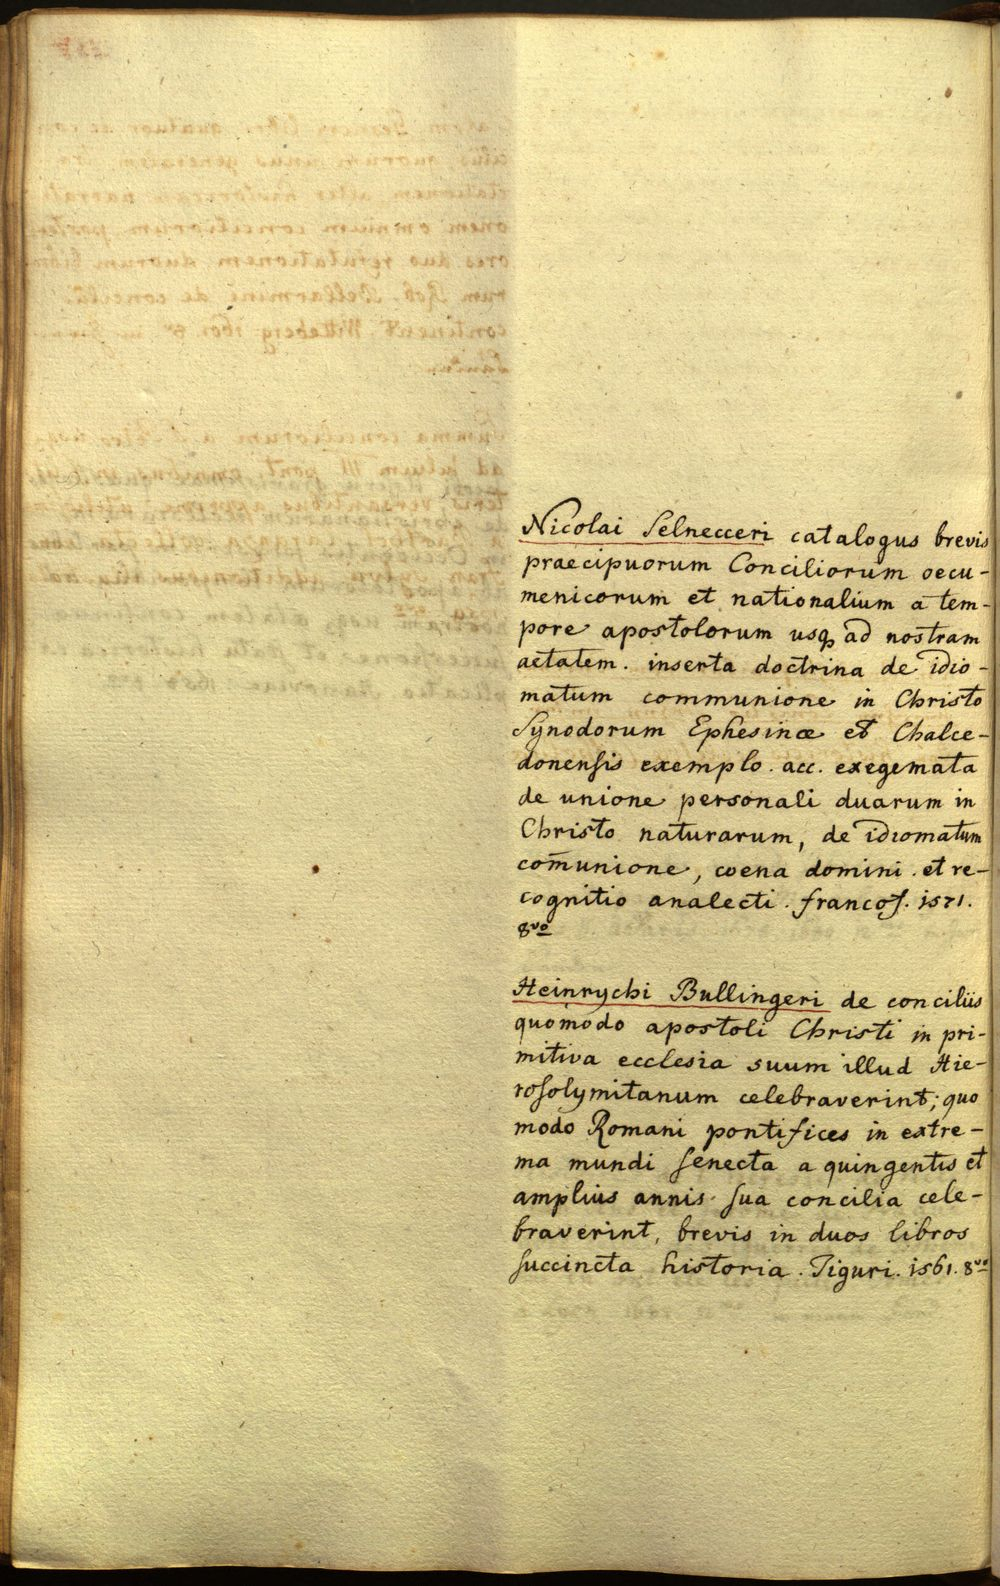 Nicolai Selnecceri catalogus brevis
praecipuorum Conciliorum oecu-
menicorum et nationalium a tem-
pore apostolorum usq ad nostram
aetatem. inserta doctrina de idio-
matum communione in Christo
Synodorum Ephesinae et Chalce-
donensis exemplo. acc. exegemata
de unione personali duarum in
Christo naturarum, de idiomatum
com̄unione, coena domini. et re-
cognitio analecti. francof. 1571.
8vo
Heinrychi Bullingeri de conciliis
quomodo apostoli Christi in pri-
mitiva ecclesia suum illud Hie-
rosolymitanum celebraverint; quo
modo Romani pontifices in extre-
ma mundi senecta a quingentis et
amplius annis sua concilia cele-
braverint, brevis in duos libros
succincta historia. Tiguri. 1561. 8vo